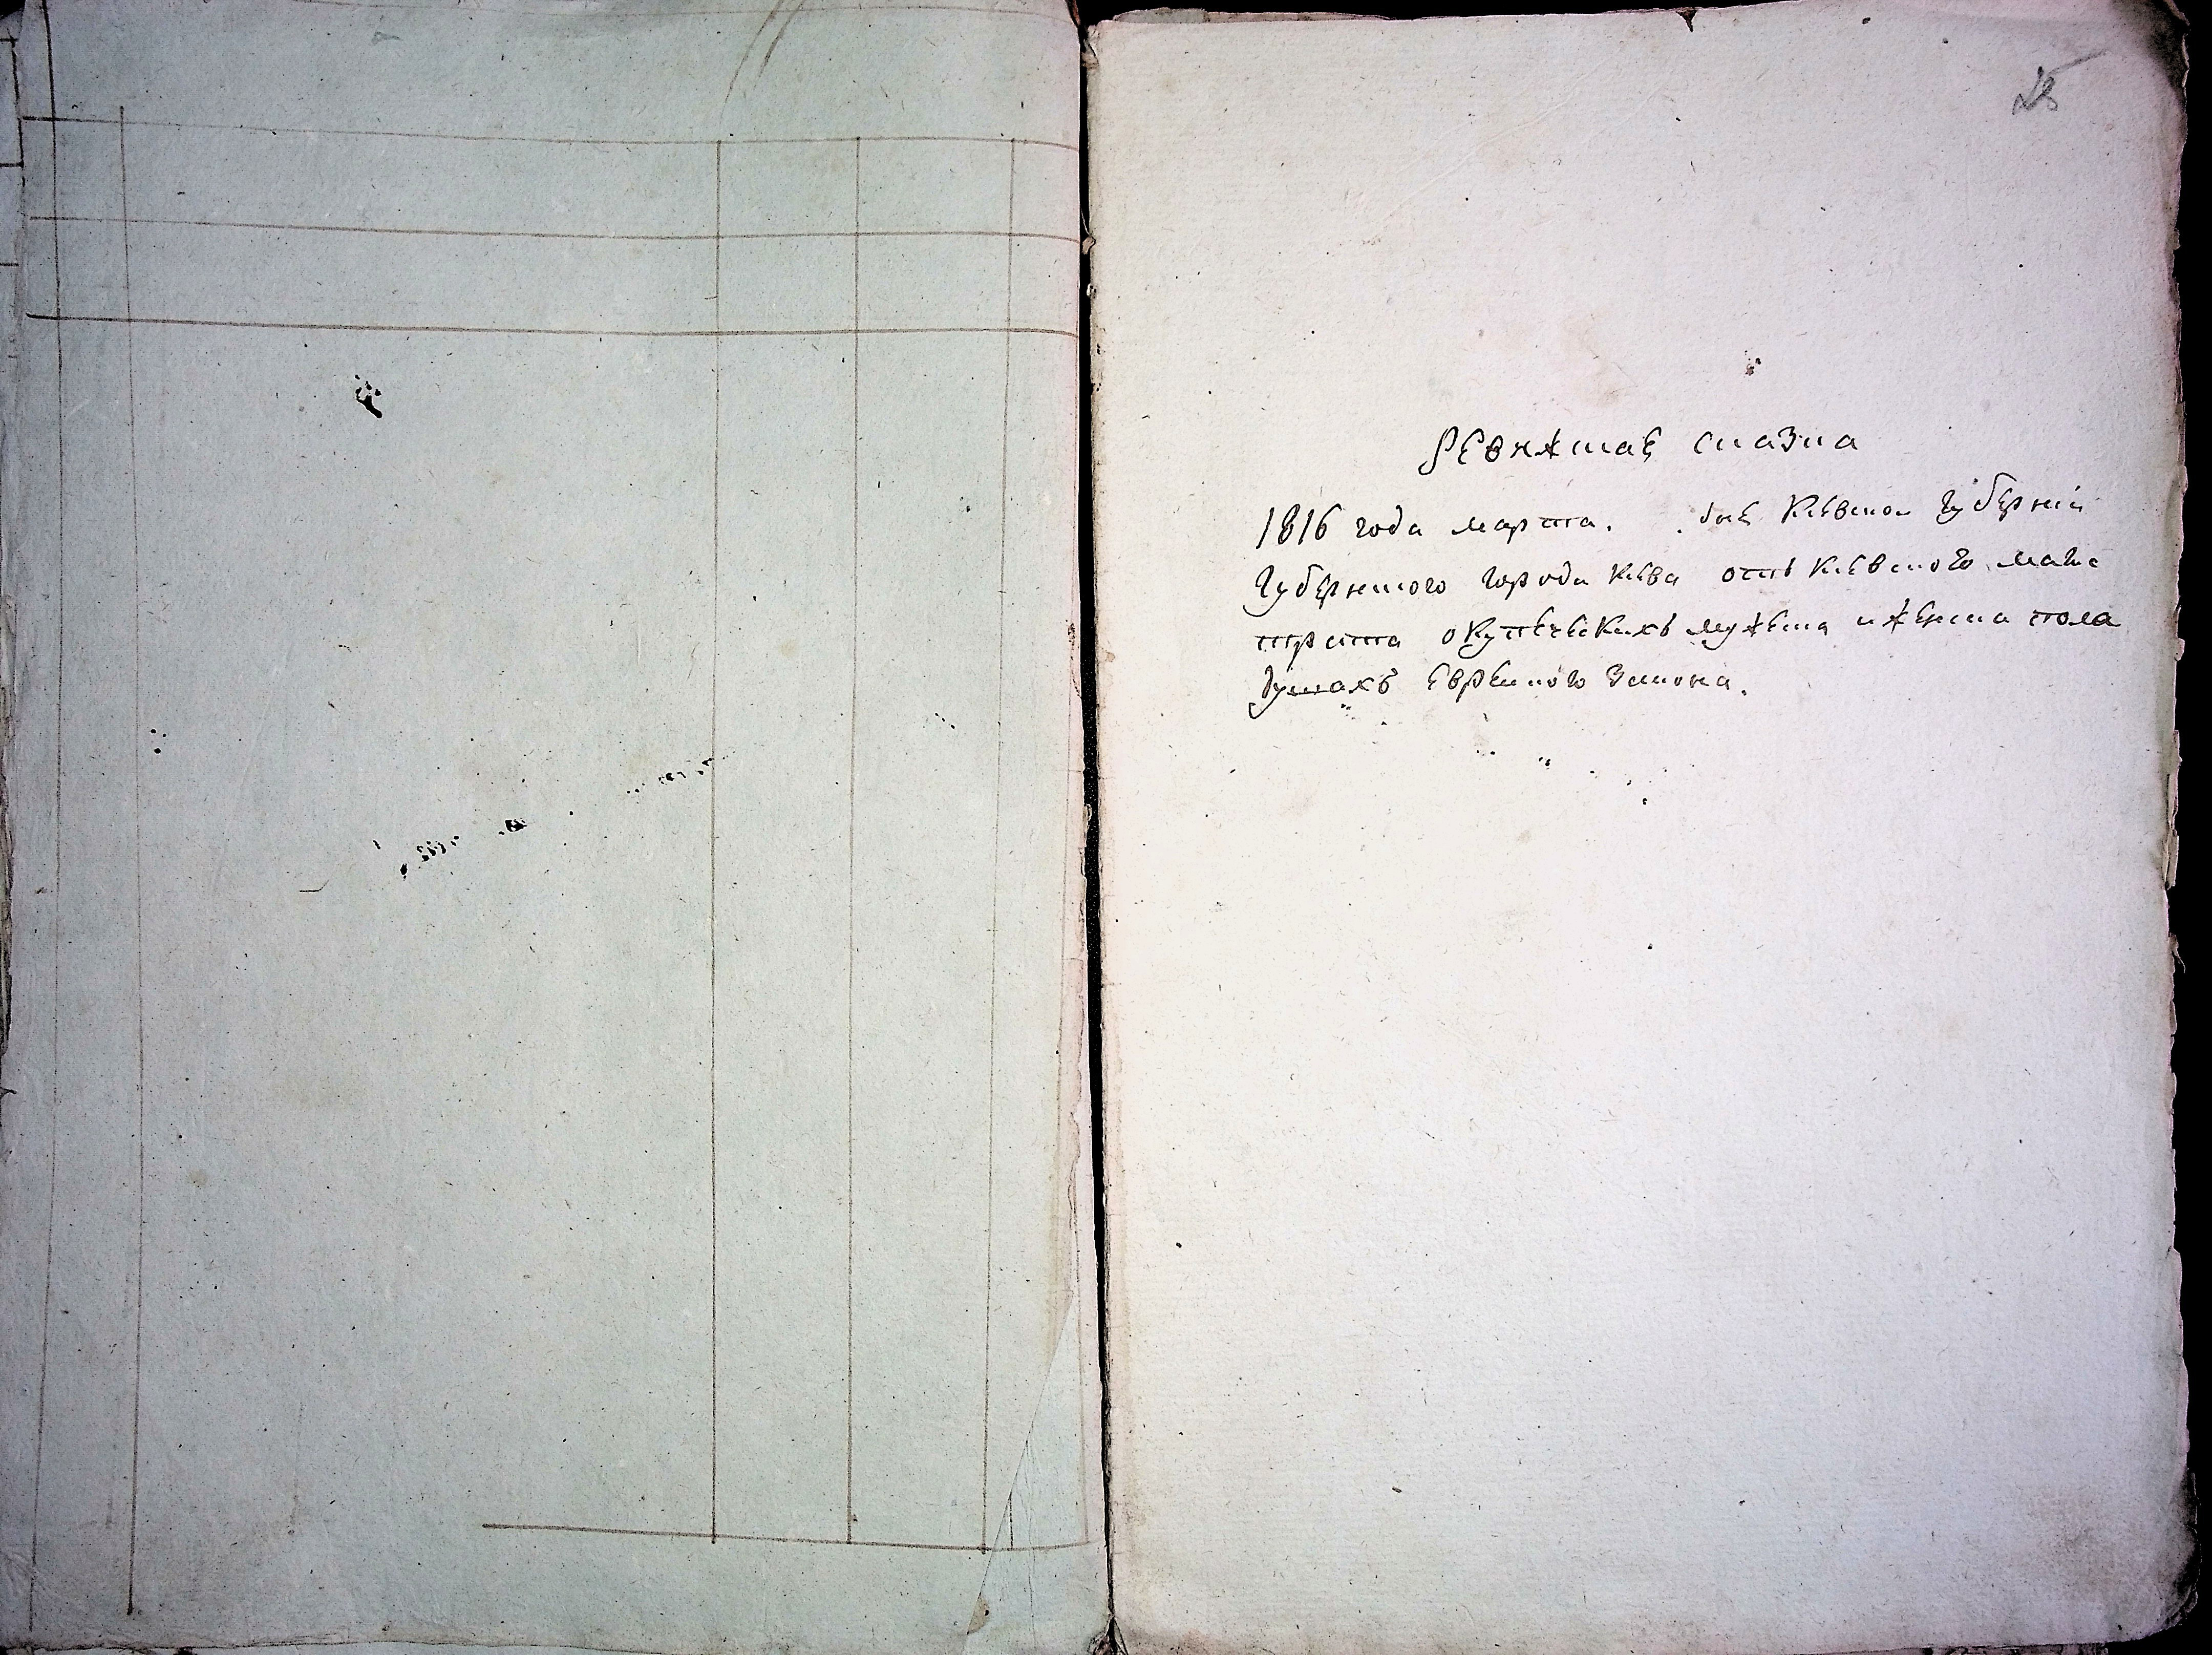 25
Ревижская сказка
1816 года марта. дня Киевской губерніи
Губернского города Киева отъ Киевского маги
страта о купеческихъ мужеска и женска пола
душахъ Еврейского Закона.